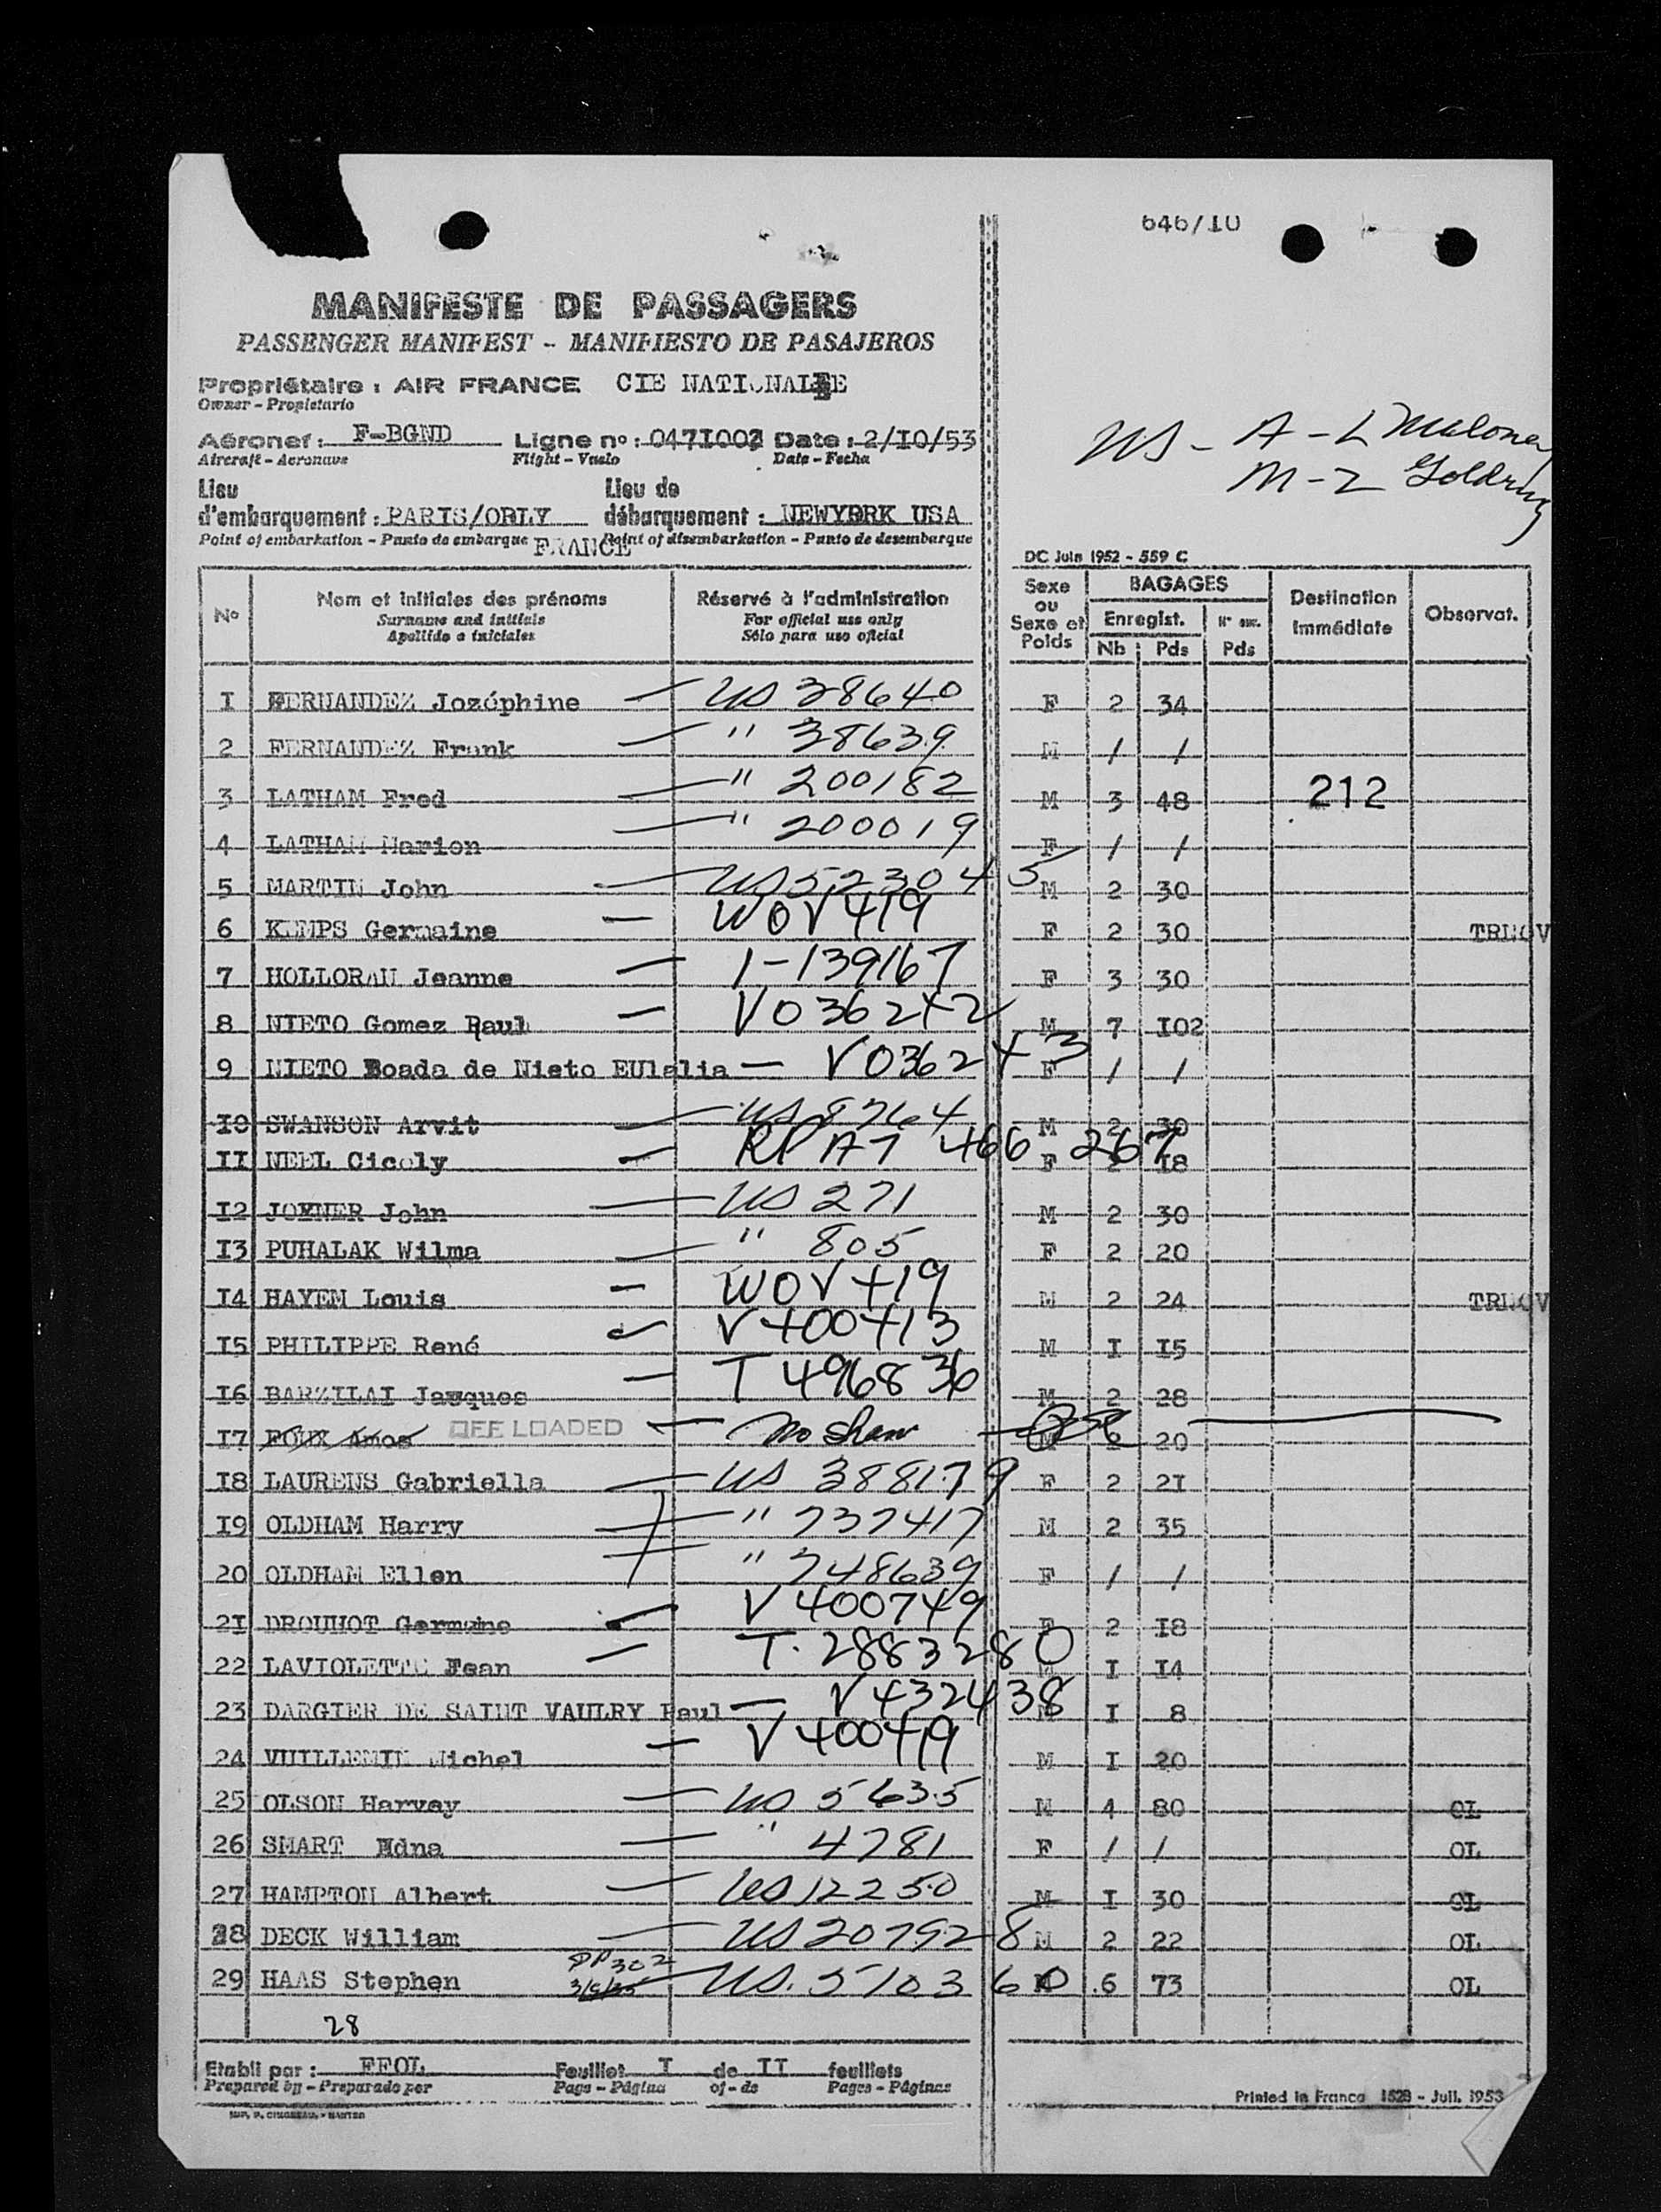 646/10
MANIFESTE DE PASSAGERS
PASSENGER MANIFEST - MANIFIESTO DE PASAJEROS
Propriétaire : AIR FRANCE CIE NATIONALE
Owner - Propietario
Aéronef : F-BGND Ligne n° : 0471002 Date : 2/IO/53
Aircraft - Aeronave Flight - Vuelo Date - Fecha
US - A - L Malone
M - Z Goldring
Lieu d'embarquement : PARIS/ORLY FRANCE Lieu de débarquement : NEWYORK USA
Point of embarkation - Punto de embarque Point of disembarkation - Punto de desembarque
DC Juin 1952 - 559 C
N° Nom et initiales des prénoms Réservé à l'administration Sexe ou Sexe et Poids BAGAGES Destination immédiate Observat.
Surname and initials For official use only Enregist. N° enr.
Apellido e iniciales Sólo para uso oficial Nb Pds Pds
I FERNANDEZ Jozéphine — US 38640 F 2 34
2 FERNANDEZ Frank — " 38639 M / /
3 LATHAM Fred — " 200182 M 3 48 212
4 LATHAM Marion — " 200019 F / /
5 MARTIN John — US 523045 M 2 30
6 KEMPS Germaine — WOV 419 F 2 30 TRUOV
7 HOLLORAN Jeanne — 1-139167 F 3 30
8 NIETO Gomez Raul — V036242 M 7 I02
9 NIETO Boada de Nieto EUlalia — V036243 F / /
I0 SWANSON Arvit — US 8764 M 2 30
II NEEL Cicely — RP A7 466 267 F 2 I8
I2 JOYNER John — US 271 M 2 30
I3 PUHALAK Wilma — " 805 F 2 20
I4 HAYEM Louis — WOV 419 M 2 24 TRUOV
I5 PHILIPPE René V400413 M I I5
I6 BARZILAI Jacques — T 496836 M 2 28
I7 FOUX Amos OFF LOADED — No Show M 2 20
I8 LAURENS Gabriella — US 388179 F 2 2I
I9 OLDHAM Harry — " 737417 M 2 35
20 OLDHAM Ellen — " 748639 F / /
2I DROUHOT Germaine V 400749 F 2 I8
22 LAVIOLETTE Jean — T. 2883280 M I I4
23 DARGIER DE SAINT VAULRY Paul — V432438 M I 8
24 VUILLEMIN Michel — V400419 M I 20
25 OLSON Harvey — US 5635 M 4 80 OL
26 SMART Edna — " 4781 F / / OL
27 HAMPTON Albert — US 12250 M I 30 OL
28 DECK William — US 207928 M 2 22 OL
29 HAAS Stephen PP 302 US. 510360 M 6 73 OL
28
Etabli par : FFOL Feuillet I de II feuillets
Prepared by - Preparado por Page - Página of - de Pages - Páginas
Printed in France 1528 - Juil. 1953